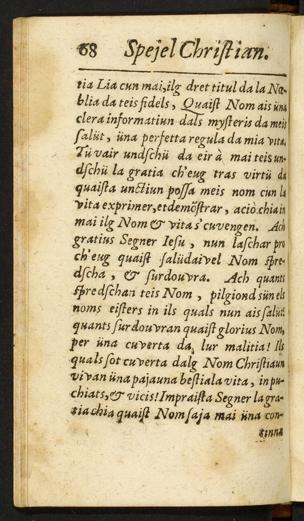 68 Spejel Christian.
tia Lia cun mai, ilg dret titul da la Nœ-
blia da teis fidels, Quaist Nom ais üna
clera informatiun dals mysteris da meis
salüt, üna perfetta regula da mia vita.
Tü vair undschü da eir à mai teis un-
dschü la gratia ch'eug tras virtü da
quaista unctiun possa meis nom cun la
vita exprimer, et demõstrar, aciò chia in
mai ilg Nom & vita s'cuvengen. Ach
gratius Segner Iesu, nun laschar pro
ch'eug quaist salüdaivel Nom spre-
dscha, & surdouvra. Ach quants
spredschan teis Nom, pilgiond sün els
noms eisters in ils quals nun ais salüt
quants surdouvran quaist glorius Nom,
per üna cuverta da lur malitia! Ils
quals sot cuverta dalg Nom Christiaun
vivan üna pajauna bestiala vita, in pu-
chiats, & vicis! Impraista Segner la gra-
tia chia quaist Nom saja mai üna con-
tinna